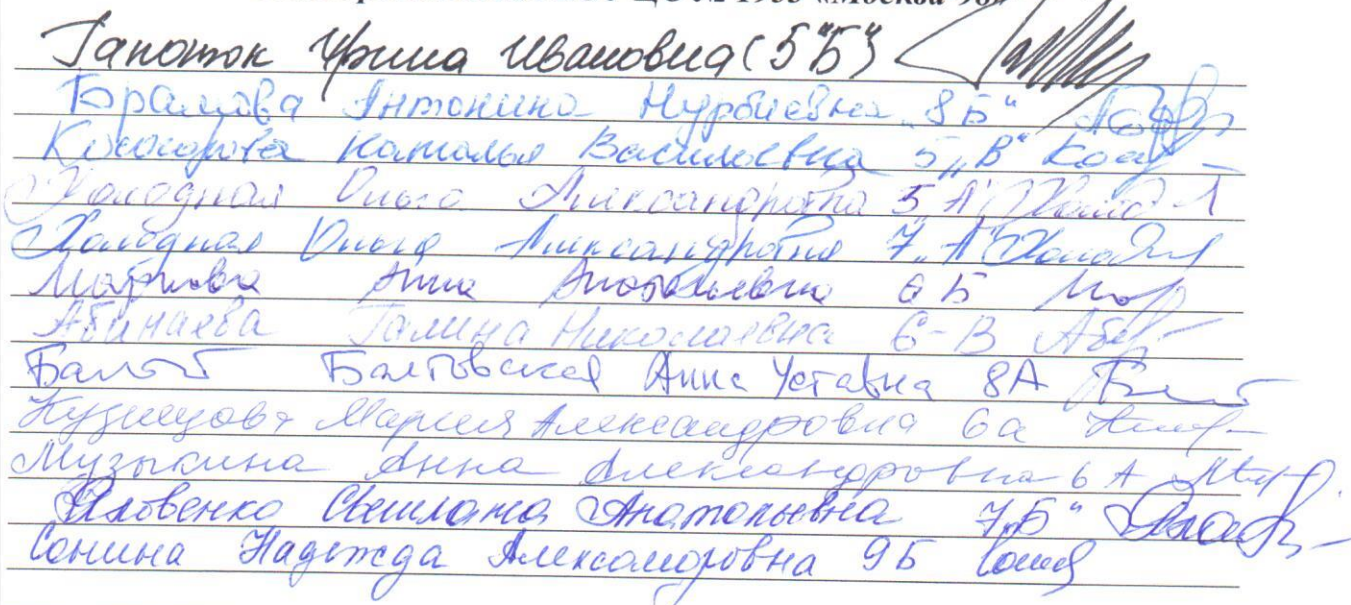 ЦО № 1953 «Москва-98»
Гапоток Ирина Ивановна (5"Б")
Антонина Нурбиевна "8Б"
Наталья Васильевна 5 „В"
Холодная Ольга Александровна 5 „А"
Холодная Ольга Александровна 7 „А"
Анна Анатольевна 6 Б
Абинаева Галина Николаевна 6-В
Балтовская Анна Уставна 8А
Кузнецова Мария Александровна 6а
Музыкина Анна Александровна 6 А
Яловенко Светлана Анатольевна 7„Б"
Сонина Надежда Александровна 9Б